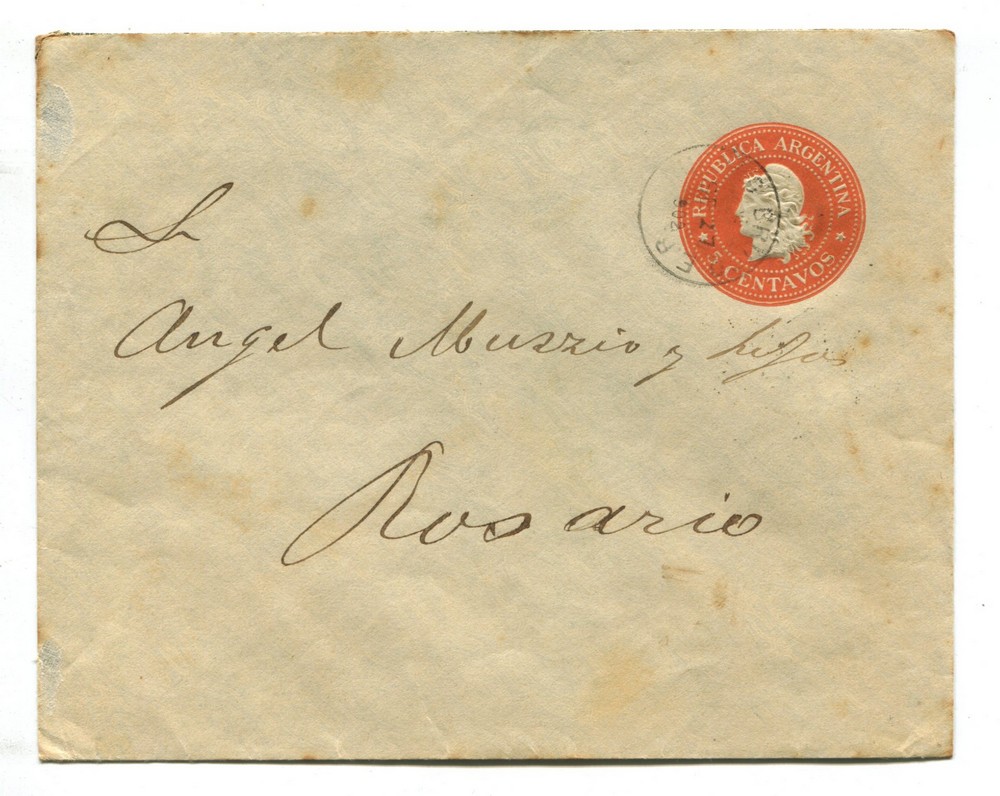 REPUBLICA ARGENTINA
5 CENTAVOS
27
S
Angel Muzzio y hijos
Rosario